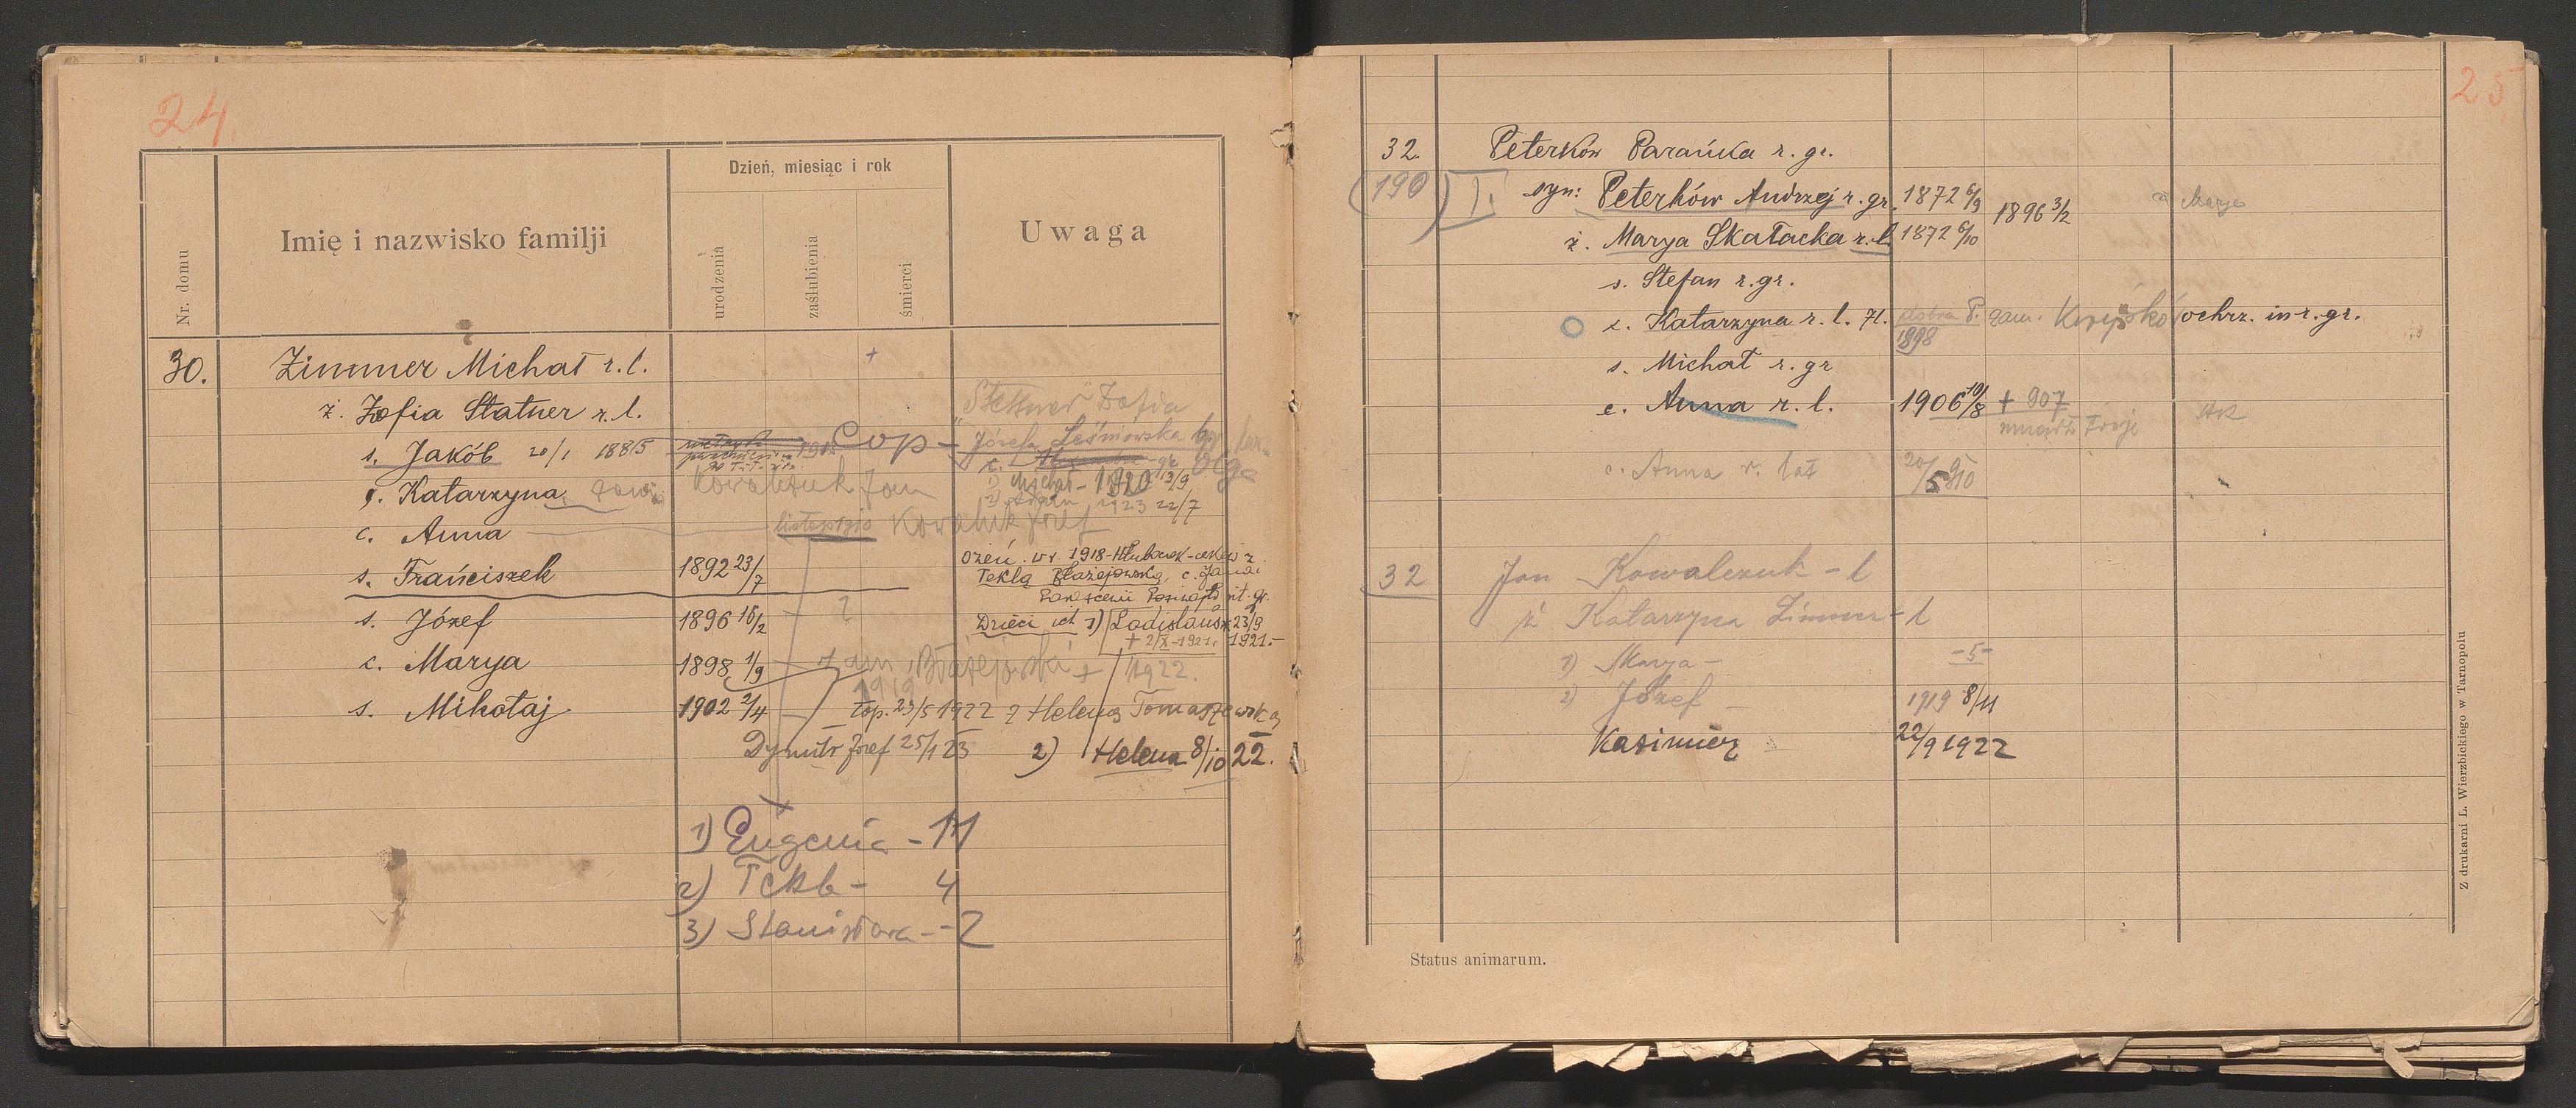 24.
Nr. domu
Imię i nazwisko familji
Dzień, miesiąc i rok
urodzenia
zaślubienia
śmierci
Uwaga
30. Zimmer Michał r. l. +
ż. Zofia Statner r. l. Stettner Zofia
s. Jakób 20/1 1885 Józefa Leśniowska
c. Katarzyna Kowalczuk Jan 1) Michał - 1920 13/9
2) Adam 1923 22/7
c. Anna listop 1910 Kowalczuk Józef
s. Franciszek 1892 23/7 Ożen. w r. 1918 z
Teklą Błażejowską, c. Jana i
s. Józef 1896 16/2 - ? Dzieci ich 1) Ladislaus 23/9 1921.
+ 2/X - 1921.
c. Marya 1898 1/9 zam. Błażejowski + 1922.
1919
s. Mikołaj 1902 2/4 - 23/5 1922 z Heleną Tomaszewską
Dymitr Józef 25/1 23 2) Helena 8/10 22.
1) Eugenia - 11
2) Tekla - 4
3) Stanisława - 2
25
32. Peterków Parańka r. gr.
(190) I. syn: Peterków Andrzej r. gr. 1872 6/9 1896 3/2 Marya
ż. Marya Skałacka r. l. 1872 6/10
s. Stefan r. gr.
c. Katarzyna r. l. 7l. zam. ochrz. in r. gr.
1898
s. Michał r. gr
c. Anna r. l. 1906 10/8 + 907
c. Anna r. łat 20/5 910
32 Jan Kowalczuk - l
ż Katarzyna Zimmer - l
1) Marya - -5-
2) Józef - 1919 8/11
Kazimierz 22/9 1922
Status animarum.
Z drukarni L. Wierzbickiego w Tarnopolu